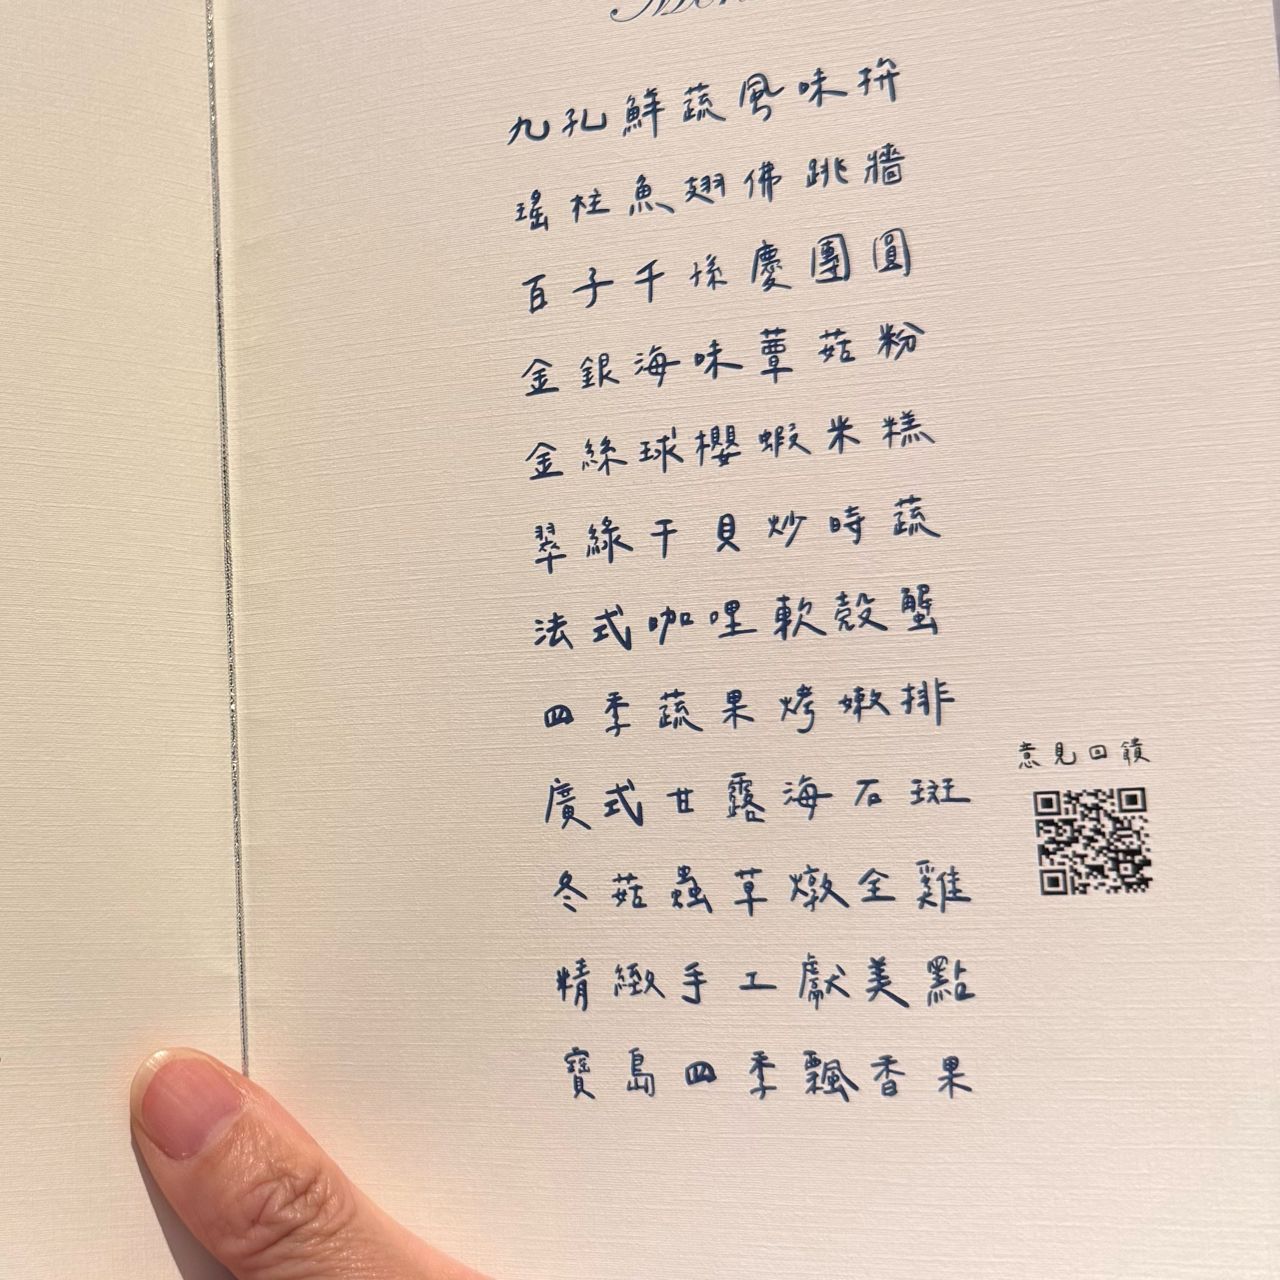 九孔鮮蔬風味拚
瑤柱魚翅佛跳牆
百子千孫慶團圓
金銀海味蕈菇粉
金絲球櫻蝦米糕
翠綠干貝炒時蔬
法式咖哩軟殼蟹
四季蔬果烤嫩排
意見回饋
廣式甘露海石斑
冬菇蟲草燉全雞
精緻手工獻美點
寶島四季飄香果